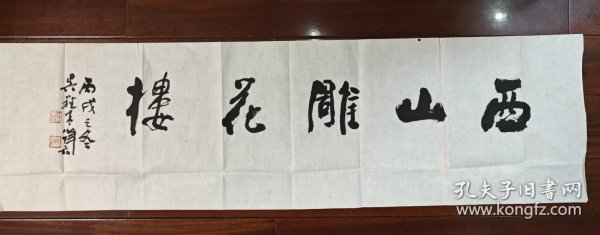 西山雕花楼
丙戌之冬
孔夫子旧书网
www.kongfz.com